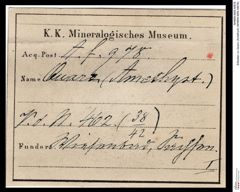 K. K. Mineralogisches Museum.
Acq. Post. A. f. 978.
Name Quarz (Amethyst.)
V. d. N. 462 (38/42)
Fundort Wiesenbad, Sachsen.
I